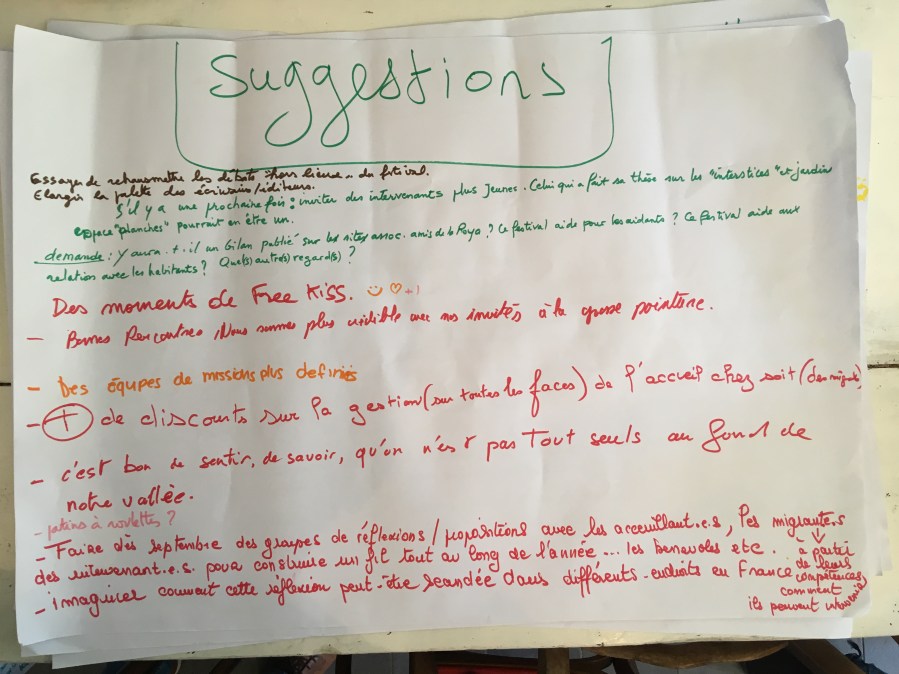 Suggestions
Essayer de retransmettre les débats hors lieux du festival.
Elargir la palette des écrivains/éditeurs.
S'il y a une prochaine fois : inviter des intervenants plus jeunes. Celui qui a fait sa thèse sur les "interstices" et jardin
espace "planches" pourrait en être un.
demande : Y aura-t-il un bilan publié sur les sites assoc. amis de la Roya ? Ce festival aide pour les aidants ? Ce festival aide aux
relation avec les habitants ? Quel(s) autre(s) regard(s) ?
Des moments de Free Kiss. ☺ ♡ +1
- Bonnes Rencontres. Nous sommes plus crédible avec nos invités à la grosse pointure.
- Des équipes de missions plus definies
- + de discours sur la gestion (sur toutes les faces) de l'accueil chez soit (des migrants)
- c'est bon de sentir, de savoir, qu'on n'est pas Tout seuls au fond de
notre vallée.
- patins à roulettes ?
- Faire dès septembre des groupes de réflexions / propositions avec les acceuillant.e.s, les migrant.e.s
des intervenant.e.s. pour construire un fil tout au long de l'année ... les benevoles etc.
- imaginer comment cette réflexion peut-être scandée dans différents endroits en France
à partir
de leurs
compétences
comment
ils peuvent